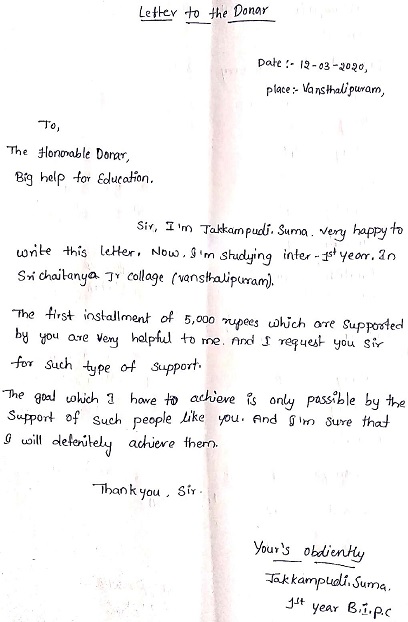 Letter to the Donar
Date :- 12-03-2020,
place:- Vansthalipuram,
To,
The Honorable Donar,
Big help for Education.
Sir, I'm Jakkampudi. Suma. very happy to
write this letter. Now. I'm studying inter-1st year. In
Sri chaitanya Jr collage (vansthalipuram).
The first installment of 5,000 rupees which are supported
by you are very helpful to me. And I request you sir
for such type of support.
The goal which I have to achieve is only possible by the
support of such people like you. And I'm sure that
I will defenitely achieve them.
Thank you, Sir.
Your's obdiently
Jakkampudi. Suma.
1st year B.i.p.c